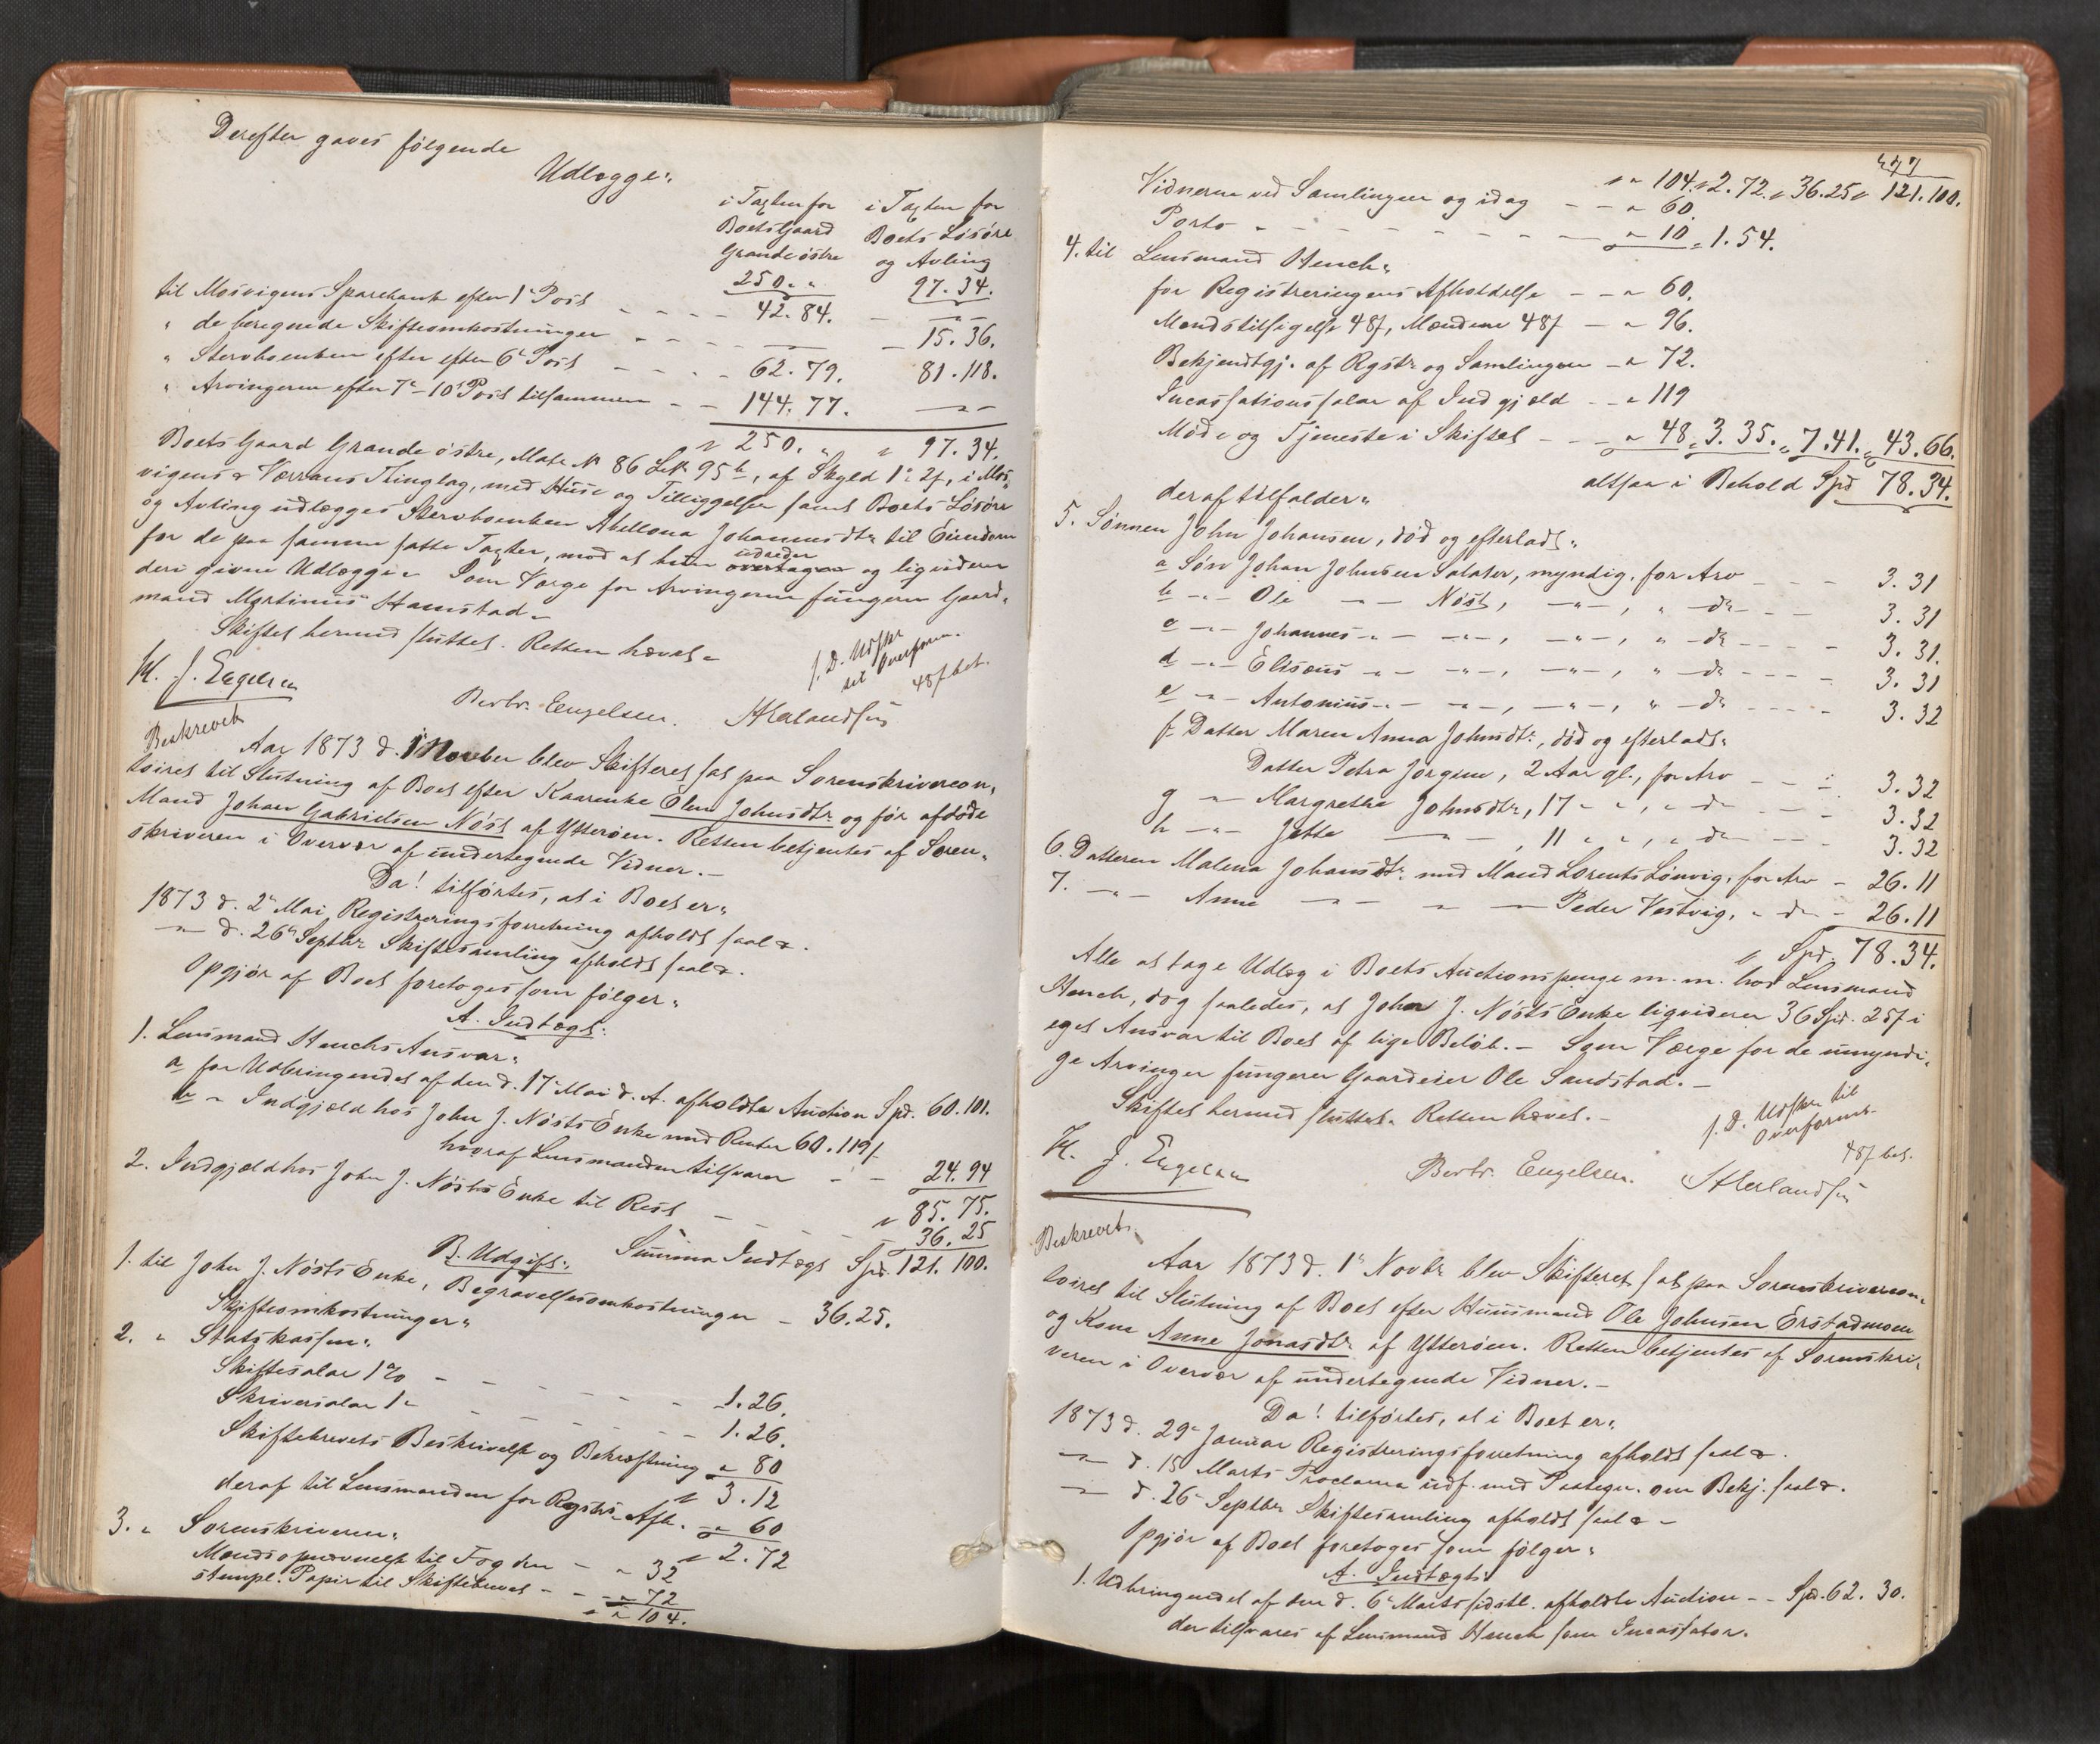 Derefter gaves følgende
Udlægge:
i Taxten for Boets Gaard Grande østre
i Taxten for Boets Løsøre og Avling
250. " 97.34.
til Mosvigens Sparebank efter 1' Post - - - - 42.84. - -"-
" de beregnede Skifteomkostninger - - - - - 15.36.
" Stervboenken efter efter 6' Post - - - - 62.79. 81.118.
" Arvingerne efter 7'-10' Post tilsammen - - 144.77. -"-
" 250. " " 97.34.
Boets Gaard Grande østre, Matr. N 86 L.N. 95b, af Skyld 1 2f, i Mos-
vigens & Værrans Thinglag, med Huse og Tilliggelser samt Boets Løsøre
og Avling udlægges Stervboenken Abellona Johannesdtr til Eiendom
for de paa samme satte Taxter, mod at hun overtager udreder og ligviderer
deri givne Udlægge. Som Værge for Arvingerne fungerer Gaard-
mand Martinus Hamstad.
Skiftet hermed sluttet. Retten hævet.
f. D. Udskr. til Overform. 48f bet.
H. J. Engelsen
Berbr. Engelsen. St Erlandsen
Beskrevet
Aar 1873 d. 1' Novber blev Skifteret sat paa Sorenskrivercon-
toiret til Slutning af Boet efter Kaarenke Olen Johnsdtr og før afdøde
Mand Johan Gabrielsen Nøst af Ytterøen. Retten betjentes af Soren-
skriveren i Overvær af undertegnede Vidner.-
Da! tilførtes, at i Boet er:
1873 d. 2' Mai Registreringsforretning afholdt saal.
-"- d. 26' Septbr Skiftesamling afholdt saal.
Opgjør af Boet foretoges som følger:
A. Indtægt:
1. Lensmand Henchs Ansvar:
a for Udbringendet af den d. 17' Mai d. A. afholdte Auction Spd. 60.101.
b " Indgjæld hos John J. Nøsts Enke med Renter 60.119f
hvoraf Lensmanden tilsvarer - - 24.94
" 85.75.
2. Indgjæld hos John J. Nøsts Enke til Rest - - - - 36.25
Summa Indtægt Spd. 121.100.
B. Udgift:
1. til John J. Nøsts Enke, Begravelsesomkostninger - 36.25.
Skifteomkostninger:
2. " Statskassen:
Skiftesalær 1% - - - - - - - 1.26.
Skriversalær 1" - - - - - - - 1.26.
Skiftebrevets Beskrivelse og Bekræftning " 80
" 3.12
deraf til Lensmanden for Registr. Afh. - " 60
" 2.72
3. " Sorenskriveren:
Mændsopnævnelse til Fogden - " 32
stempl. Papir til Skiftebrevet - - " 72
" " 104.
447
" " 104. " 2.72. " 36.25 " 121.100.
Vidnerne ved Samlingen og idag - - " 60.
Porto - - - - - - - - " 10 " 1.54.
4. til Lensmand Hench:
for Registreringens Afholdelse - - " 60.
Mændstilsigelse 48f, Mændene 48f - " 96.
Bekjendtgj. af Rgstr. og Samlingen - " 72.
Incassationssalær af Indgjæld - - " 119
Møde og Tjeneste i Skiftet - - - " 48 " 3.35. " 7.41. " 43.66.
altsaa i Behold Spd 78.34.
deraf tilfalder:
5. Sønnen John Johansen, død og efterladt:
a Søn Johan Johnsen Salater, myndig, for Arv - - - 3.31
b -"- Ole -"- Nøst, -"-, " -do - - - 3.31
c -"- Johannes -"- -"-, -"-, " -do - - - - 3.31.
d -"- Eliseus -"- -"-, -"-, " -do - - - - 3.31
e -"- Antonius -"- -"-, -"-, " -do - - - - 3.32
f. Datter Maren Anna Johnsdtr, død og efterladt:
Datter Petra Jørgine, 2 Aar gl., for Arv - - - 3.32
g -"- Margrethe Johnsdtr, 17 " ", " do - - - 3.32
h -"- Jette -"-, 11 " ", " do - - - 3.32
6. Datteren Malena Johansdtr med Mand Lorents Lønvig, for Arv - 26.11
7. -"- Anne -"- " -"- Peder Vestvig, " do - 26.11
" Spd. 78.34.
Alle at tage Udlæg i Boets Auctionspenge m. m. hos Lensmand
Hench, dog saaledes, at John J. Nøsts Enke ligviderer 36 Spd. 25f i
eget Ansvar til Boet af lige Beløb.- Som Værge for de umyndi-
ge Arvinger fungerer Gaardeier Ole Sandstad.-
Skiftet hermed sluttet. Retten hævet.-
f. D. Udskr. til Overform. 48f bet.
H. J. Engelsen
Berbr. Engelsen. St Erlandsen
Beskrevet.
Aar 1873 d. 1' Novbr blev Skifteret sat paa Sorenskrivercon-
toiret til Slutning af Boet efter Huusmand Ole Johnsen Erstadmoen
og Kone Anne Jonasdtr af Ytterøen. Retten betjentes af Sorenskri-
veren i Overvær af undertegnede Vidner.-
Da! tilførtes, at i Boet er:
1873 d. 29' Januar Registreringsforretning afholdt saal.
-"- d. 15 Marts Proclama udf. med Paategn. om Bekj. saal.
-"- d. 26' Septbr Skiftesamling afholdt saal -
Opgjør af Boet foretoges som følger:
A. Indtægt:
1. Udbringendet af den d. 6' Marts sidstl. afholdte Auction - - Spd. 62.30.
der tilsvares af Lensmand Hench som Incassator.